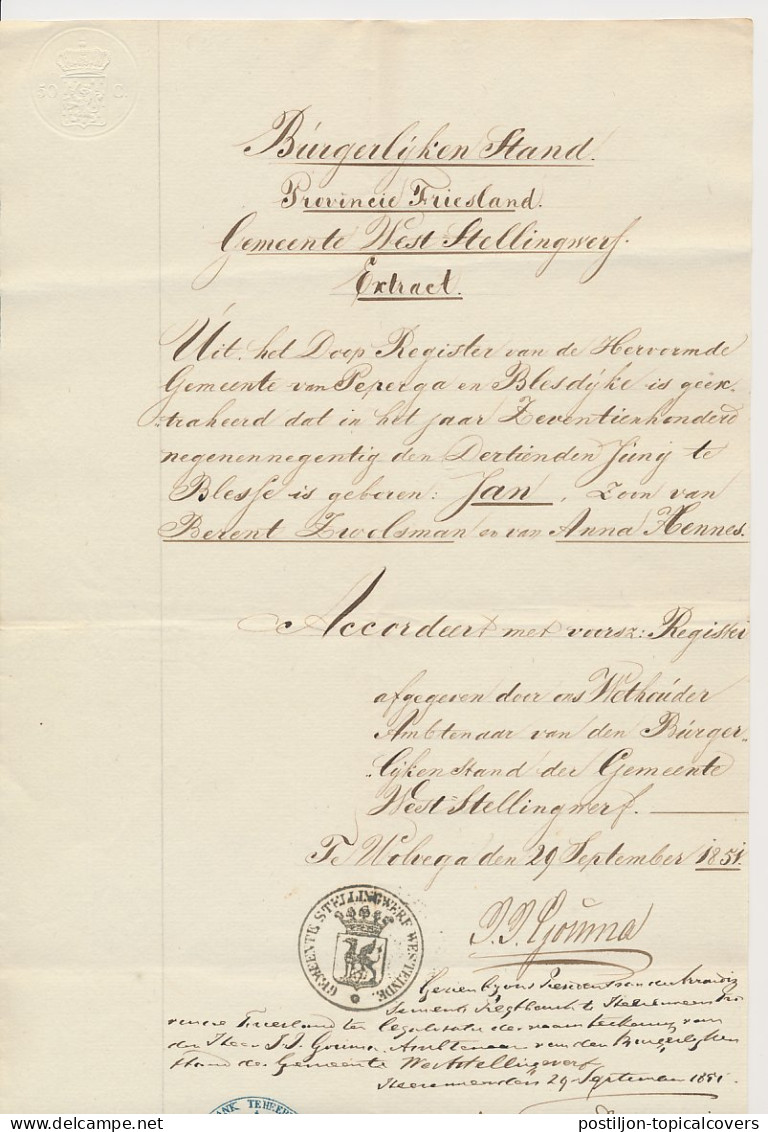 50 C.
Bürgerlijken Stand.
Provincie Friesland.
Gemeente West Stellingwerf.
Extract.
Uit het Doop Register van de Hervormde
Gemeente van Peperga en Blesdijke is geëx-
traheerd dat in het jaar Zeventienhonderd
negenennegentig den Dertienden Junij te
Blesse is geboren: Jan, Zoon van
Berent Zwolsman en van Anna Hennes.
Accordeert met voorsz: Register
afgegeven door ons Wethouder
Ambtenaar van den Bürger-
lijken Stand der Gemeente
West Stellingwerf.
Te Wolvega den 29 September 1851.
GEMEENTE STELLINGWERF WESTEINDE.
Gezien bij ons President van de Arrondis
sements Regtbank te Heerenveen Pro
vincie Friesland ter legalisatie der naamteekening van
den Heer Ambtenaar van den Burgerlijken
Stand der Gemeente Weststellingwerf
Heerenveen den 29 September 1851.
BANK TE HEERE
postiljon-topicalcovers